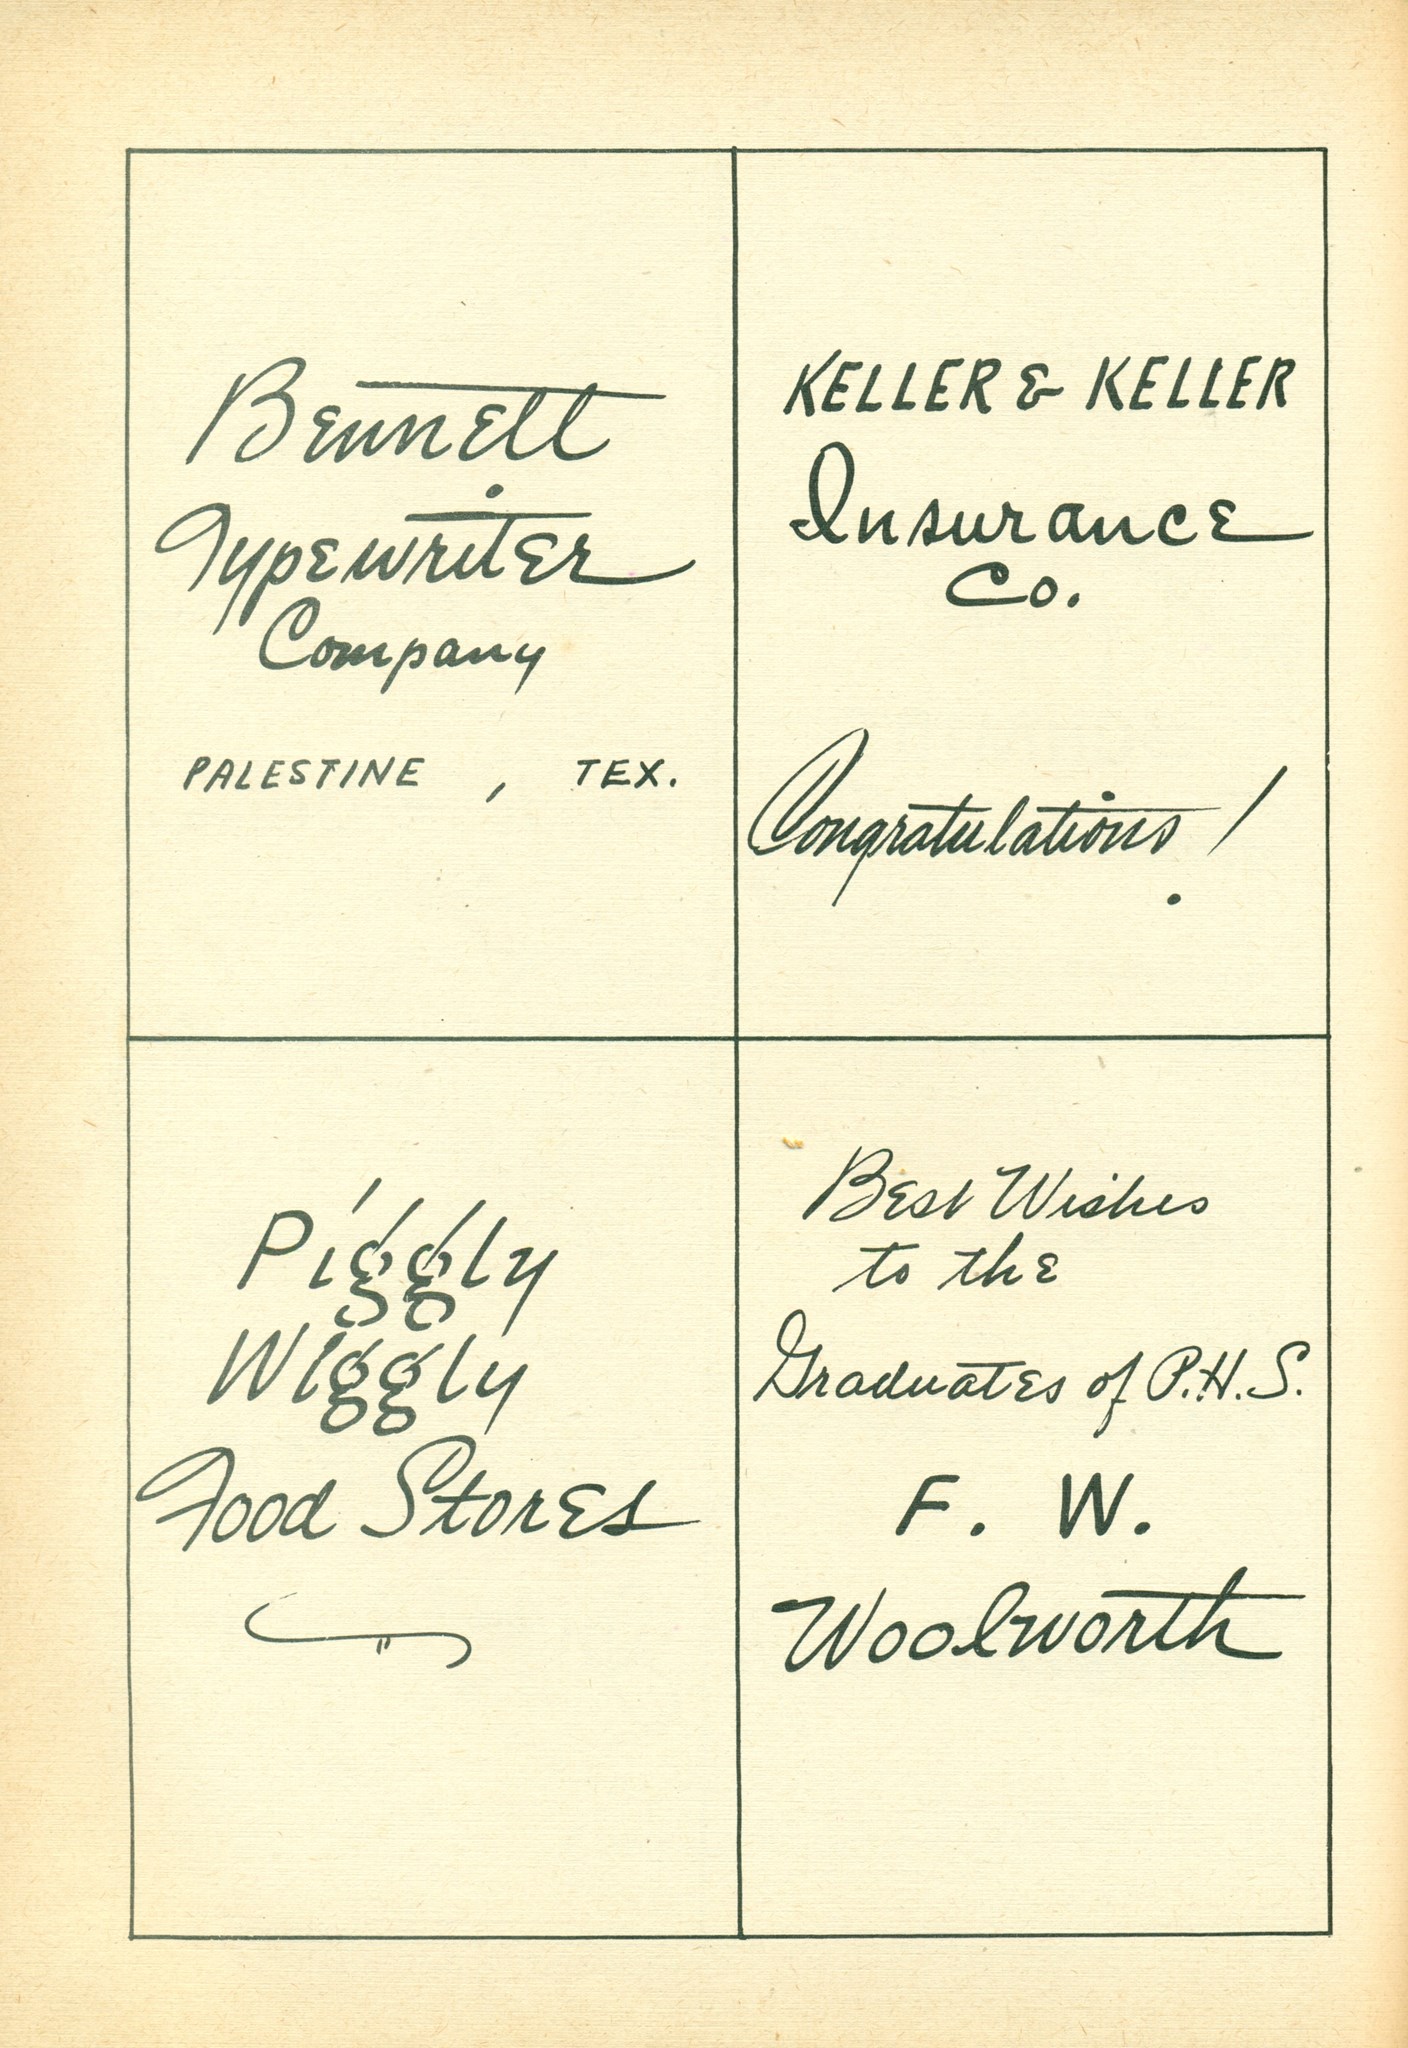 Bennett
Typewriter
Company
PALESTINE, TEX.
KELLER & KELLER
Insurance
Co.
Congratulations!
Piggly
Wiggly
Food Stores
Best Wishes
to the
Graduates of P.H.S.
F. W.
Woolworth